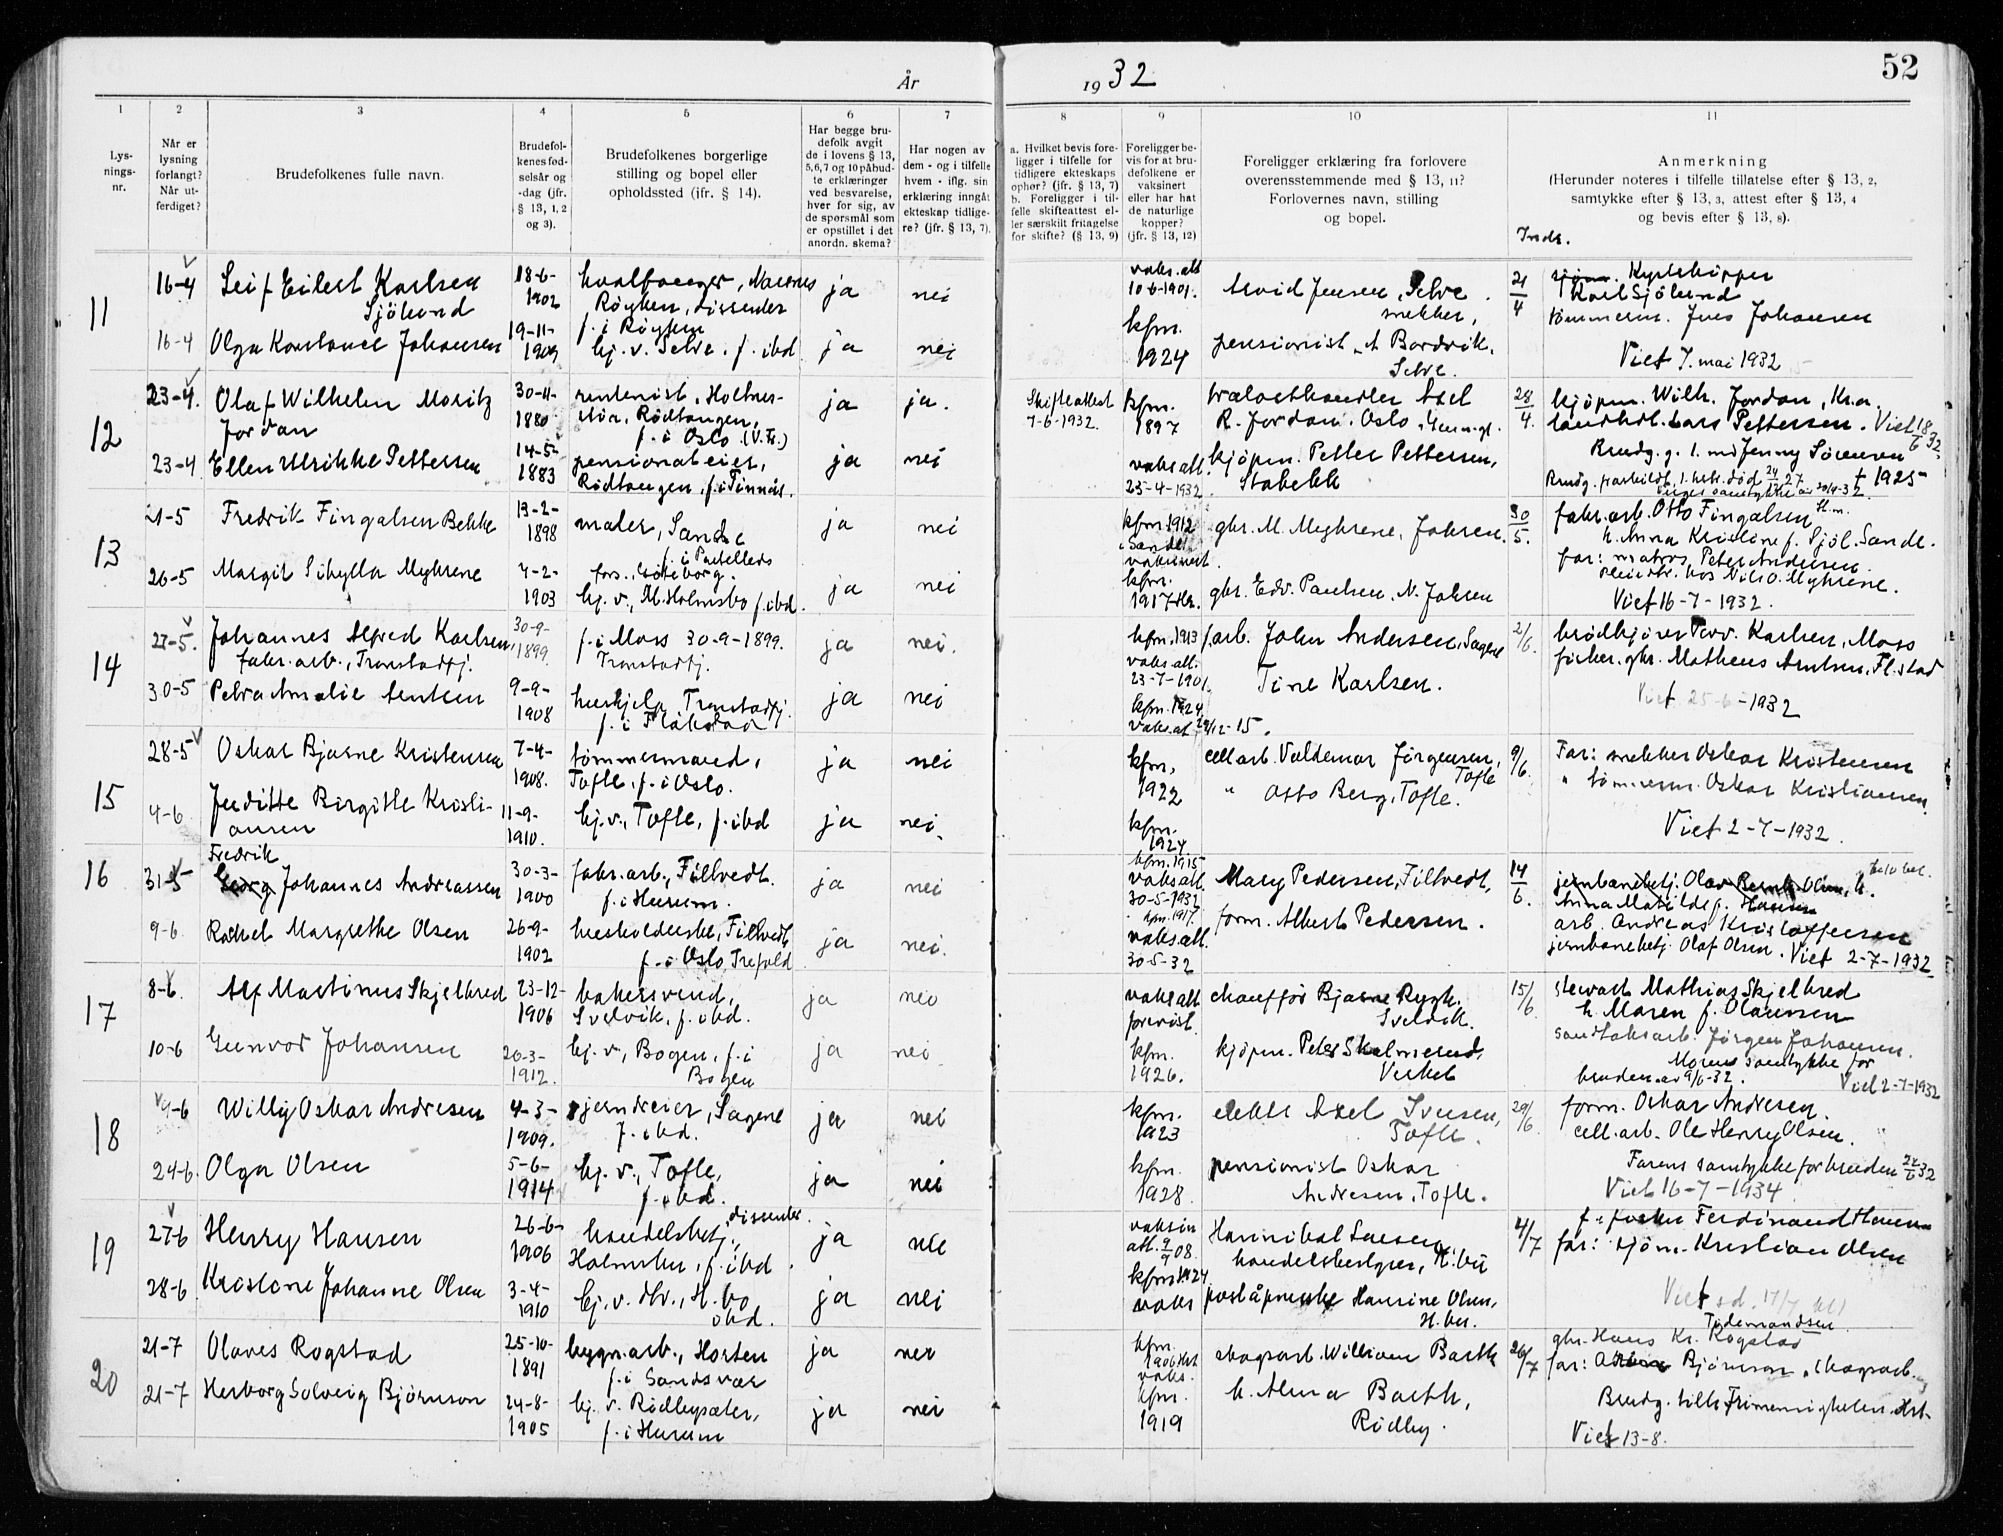 År 1932
52
1
2
3
4
5
6
7
8
9
10
11
Lys-
nings-
nr.
Når er
lysning
forlangt?
Når ut-
ferdiget?
Brudefolkenes fulle navn.
Brudefol-
kenes fød-
selsår og
-dag (jfr.
§ 13, 1, 2
og 3).
Brudefolkenes borgerlige
stilling og bopel eller
opholdssted (ifr. § 14).
Har begge bru-
defolk avgit
de i lovens § 13,
5,6,7 og 10 påbud-
te erklæringer
ved besvarelse,
hver for sig, av
de spørsmål som
er opstillet i det
anordn. skema?
Har nogen av
dem - og i tilfelle
hvem - iflg. sin
erklæring inngått
ekteskap tidlige-
re? (jfr. § 13, 7).
a. Hvilket bevis fore-
ligger i tilfelle for
tidligere ekteskaps
ophør? (jfr. § 13, 7)
b. Foreligger i til-
felle skifteattest el-
ler særskilt fritagelse
for skifte? (§ 13, 9)
Foreligger be-
vis for at bru-
defolkene er
vaksinert
eller har hat
de naturlige
kopper?
(jfr. § 13, 12)
Foreligger erklæring fra forlovere
overensstemmende med § 13, 11?
Forlovernes navn, stilling
og bopel.
Anmerkning
(Herunder noteres i tilfelle tillatelse efter § 13, 2,
samtykke efter § 13, 3, attest efter § 13, 4
og bevis efter § 13, 8).
11
16-4
Leif Eilert Karlsen
Sjölund
18-6-
1902
hvalfanger,
Røyken, dissenter
f. i Røyken
ja
nei
vaks. att
10-6-1901.
Arvid Jensen, Selve
21/4
Kystskipper
Karl Sjölund
16-4
Olga Konstance Johansen
19-11-
1909
hj. v. Selve, f. ibd
ja
nei
kfm.
1924
pensionist A Bordvik,
Selve.
tömmerm. Jens Johansen
Viet 7. mai 1932
12
23-4.
Olaf Wilhelm Moritz
Jordan
30-11-
1880
rentenist, Holtnes-
Rødtangen,
f. i Oslo (V. Fr.)
ja
ja.
Skifteattest
7-6-1932.
kfm.
1897
Axel
R. Jordan, Oslo
28/4.
kjøpm. Wilh. Jordan, Kr.a.
landhdl. Lars Pettersen. Viet 18/6 32.
23-4
Ellen Ulrikke Pettersen
14-5-
1883
pensionateier,
Rødtangen, f. i Finnås.
ja
nei
vaks att.
25-4-1932.
kjøpm. Petter Pettersen,
Stabekk
Brudg. g. 1. m/ Jenny Sörensen
† 1925
13
21-5
Fredrik Fingalsen Bekke
13-2-
1898
maler, Sande
f. i
ja
nei
kfm. 1912
i Sande
vaksinert.
gbr. M. Myhrene, Jahren.
30/5.
fabr. arb. Otto Fingalsen
h. Anna Kristine f. Sjöl. Sande.
26-5
Margit Sibylla Myhrene
4-2-
1903
fors., Göteborg.
hj. v., M. Holmsbo f. ibd.
ja
nei
kfm.
1917
gbr. Edv. Paulsen, N. Jahren
far: matros Peter Andersen.
pleiedtr. hos Nils O. Myhrene.
Viet 16-7-1932.
14
27-5.
Johannes Alfred Karlsen,
fabr. arb., Tronstadfj.
30-9-
1899.
f. i Moss 30-9-1899.
Tronstadfj.
ja
nei.
kfm. 1913
vaks. att.
23-7-1901.
f. arb. John Andersen, Sagene
2/6.
brödkjører Karlsen, Moss
30-5
Petra Amalie Arntsen
9-9-
1908
hushjelp, Tronstadfj.
f. i Flakstad
ja
nei
kfm. 1924
Tine Karlsen.
fisker. gbr. Matheus Arntsen, Fl.stad
Viet 25-6-1932
15
28-5
Oskar Bjarne Kristensen
7-4-
1908.
tömmermand,
Tofte, f. i Oslo.
ja
nei
kfm,
1922
cell arb. Valdemar Jörgensen,
Tofte
9/6.
Far: snekker Oskar Kristensen
4-6
Juditte Birgitte Kristi-
ansen
11-9-
1910.
hj. v., Tofte, f. ibd
ja
nei.
kfm.
1924.
" Asto Berg, Tofte.
" tömmerm. Oskar Kristiansen
Viet 2-7-1932
16
31-5
Fredrik
Georg Johannes Andreassen
30-3-
1900
fabr. arb., Filtvedt.
f. i Hurum.
ja
nei
kfm. 1915
vaks att.
30-5-1932
Mary Pedersen, Filtvedt,
14/6.
jernbanebetj.
Anna Matilde f. Hansen
arb. Andreas Kristoffersen
9-6
Rakel Margrethe Olsen
26-9-
1902
husholderske, Filtvedt
f. i Oslo, Trefold
ja
nei.
kfm. 1917.
vaks att.
30-5-32
form. Albert Pedersen.
jernbanebetj. Olaf Olsen. Viet 2-7-1932
17
8-6.
Alf Martinus Skjelbred
23-12-
1906
bakersvend,
Svelvik, f. ibd.
ja
nei
vaks att
forevist
chauffør Bjarne Rygh.
Svelvik.
15/6.
stewart Mathias Skjelbred
h. Maren f. Olaussen
10-6
Gunvor Johansen
20-3-
1912.
hj. v, Bogen, f. i
Bogen
ja
nei
kfm.
1926.
kjøpm. Peter Skalmerud,
Verket
sandtaksarb. Jørgen Johansen.
Morens samtykke for
bruden av 9/6-32.
Viet 2-7-1932
18
9-6
Willy Oskar Andresen
4-3-
1909.
jerndreier, Sagene
f. ibd.
ja
nei
kfm.
1923
Axel Iversen,
Tofte.
29/6.
form. Oskar Andresen.
24-6.
Olga Olsen
5-6-
1914
hj. v., Tofte,
f. ibd.
ja
nei
kfm.
1928.
pensionist Oskar
Andresen, Tofte.
cell. arb. Ole Henry Olsen.
Farens samtykke for bruden 24/6 32
Viet 16-7-1934.
19
27-6
Henry Hansen
26-6-
1906
handelsbetj., dissenter.
Holmsbu, f. ibd.
ja
nei
vaksin
att. 9/9 08.
Hannibal
handelsbestyrer, H. bu
4/7
f: fisker Ferdinand Hansen
28-6
Kristine Johanne Olsen
3-4-
1910
hj. v. dtr., H. bo
ibd.
ja
nei
kfm. 1924
vaks
poståpnerske Hansine Olsen,
H. bu.
far: sjöm. Kristian Olsen
Viet
Tidemandsen
20
21-7
Olaves Rogstad
25-10-
1891
bygn. arb., Horten
f. i Sandsvær
ja
nei
kfm.
1906
vaks.
skogsarb. William Barth
26/7
gbr. Hans Kr. Rogstad
21-7
Herborg Solveig Björnson
24-8-
1905
hj. v. Rödbysæter,
f. i Hurum
ja
nei
kfm.
1919
h. Alma Barth,
Rödby.
far: Björnson, skogsarb.
Brudg. tilh. Frimenigheten. Hrt.
Viet 13-8.